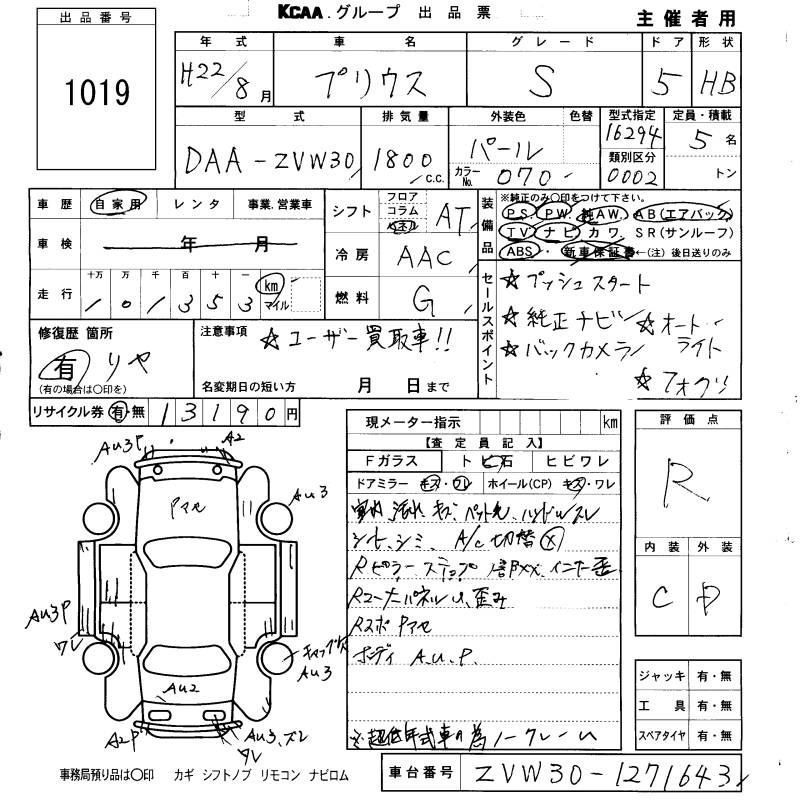 KCAA.グループ 出品票
主催者用
出品番号
1019
年式 車名 グレード ドア 形状
H22/8月 プリウス S 5 HB
型式 排気量 外装色 色替 型式指定 定員・積載
DAA-ZVW30 1800c.c. パール 16294 5名
カラーNo. 070 類別区分 0002 トン
車歴 自家用 レンタ 事業、営業車
車検 年 月
走行 十万 万 千 百 十 一
101353 km マイル
シフト フロア コラム パネル AT
冷房 AAC
燃料 G
装備品
※純正のみ○印をつけて下さい。
PS PW 純AW. AB(エアバック)
TV ナビ カワ. SR(サンルーフ)
ABS 新車保証書 ←(注)後日送りのみ
セールスポイント
☆プッシュスタート
☆純正ナビ/☆オートライト
☆バックカメラ/
☆フォグ
修復歴 箇所
有 リヤ
(有の場合は○印を)
注意事項
☆ユーザー買取車!!
名変期日の短い方 月 日まで
リサイクル券 有 無 13190円
現メーター指示 km
【査定員記入】
Fガラス トビ石 ヒビワレ
ドアミラー キズ・ワレ ホイール(CP) キズ・ワレ
シート、シミ、A/C切替 ×
Rスポ Pアセ
ボディ A.U.P.
※超低年式車の為ノークレーム
評価点
R
内装 外装
C D
ジャッキ 有・無
工具 有・無
スペアタイヤ 有・無
AU3P A2
Pアセ
AU3
AU3P
ワレ
AU3
AU2
A2P AU3.ズレ
ワレ
事務局預り品は○印 カギ シフトノブ リモコン ナビロム
車台番号 ZVW30-1271643